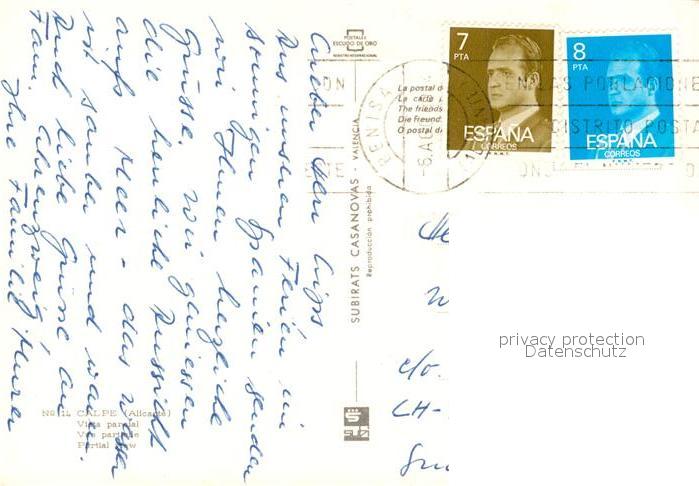 Liebe Herr Lips
Aus unseren Ferien im
sonnigen Spanien senden
wir Ihnen herzliche
Grüsse. Wir geniessen
die herrliche Aussicht
aufs Meer - das Wasser
ist sauber und warm.
Und liebe Grüsse an
Fam.
Ihre Familie
POSTALES
ESCUDO DE ORO
7
PTA
ESPAÑA
CORREOS
8
PTA
ESPAÑA
CORREOS
POBLACIONE
DISTRITO POSTA
La postal d
La carte
The friends
Die Freund
O postal d
SUBIRATS CASANOVAS - VALENCIA
Reproducción prohibida
c/o.
CH-
privacy protection
Datenschutz
No. 11 CALPE (Alicante)
Vista parcial
Vue partielle
Partial view